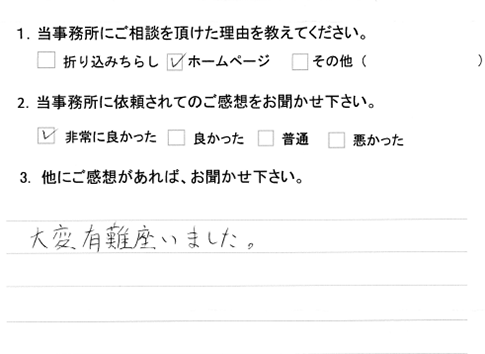 1. 当事務所にご相談を頂けた理由を教えてください。
□ 折り込みちらし ☑ ホームページ □ その他（　　　　　）
2. 当事務所に依頼されてのご感想をお聞かせ下さい。
☑ 非常に良かった □ 良かった □ 普通 □ 悪かった
3. 他にご感想があれば、お聞かせ下さい。
大変有難座いました。